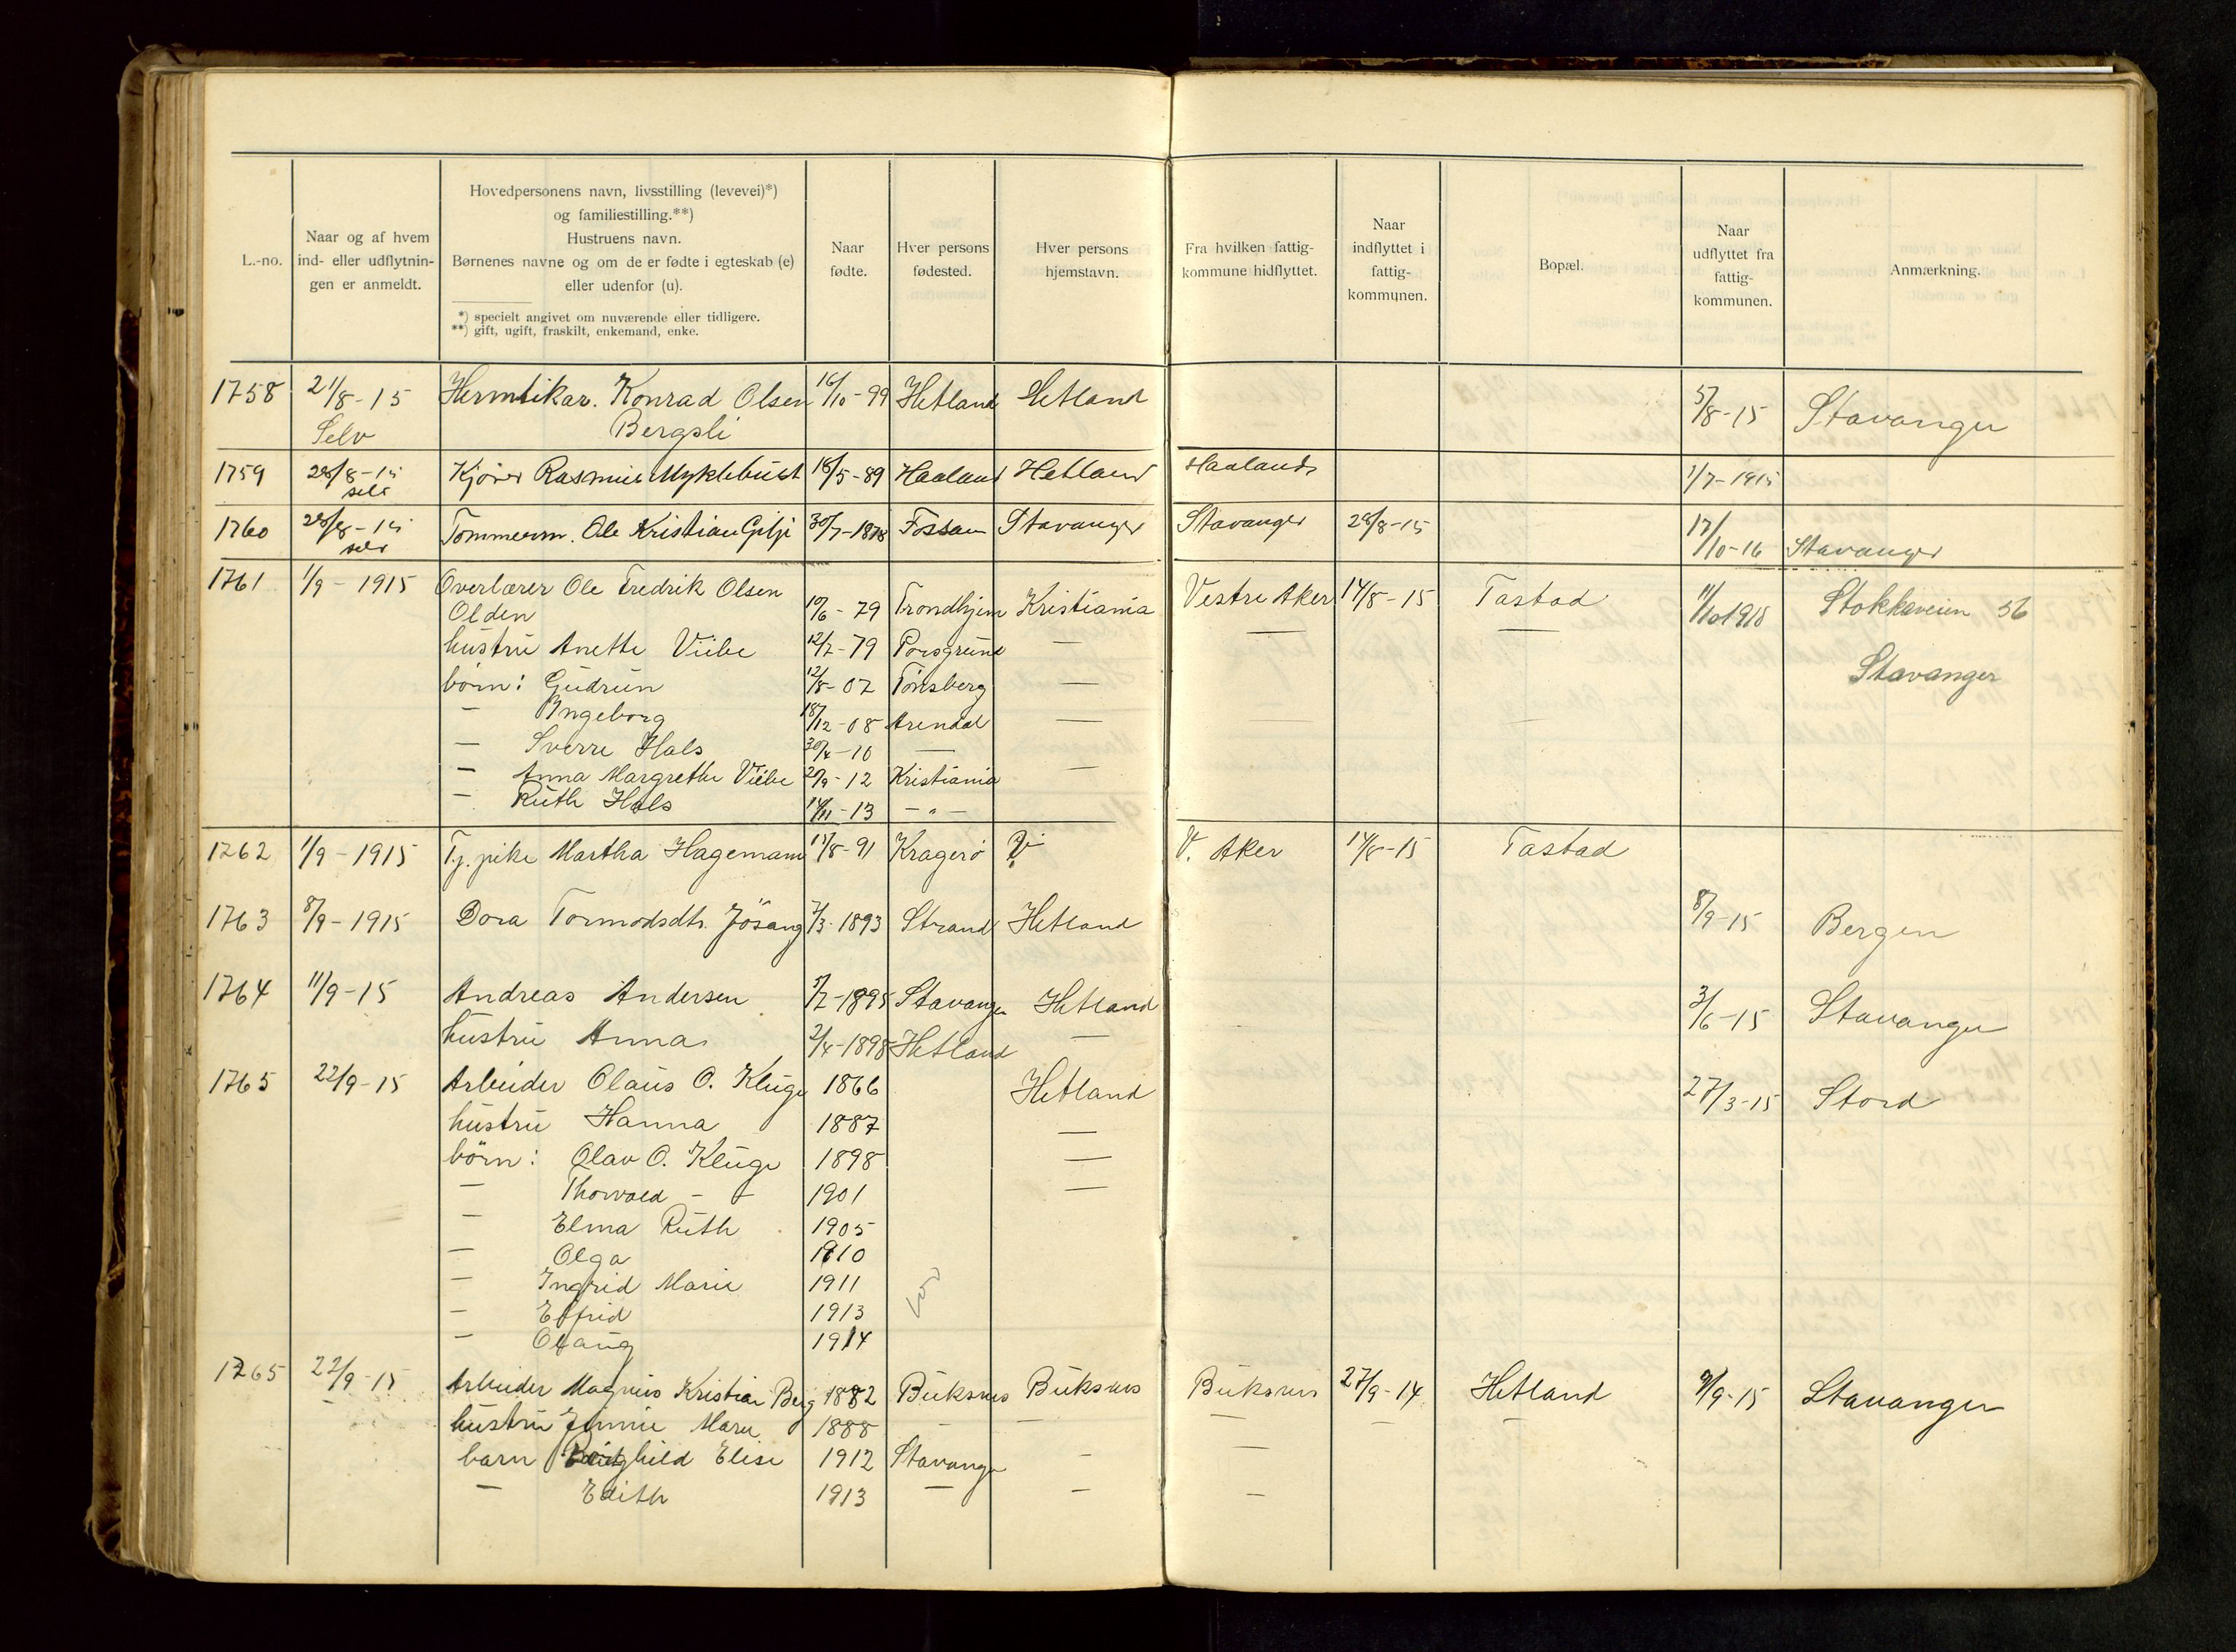 Hovedpersonens navn, livsstilling (levevei)*)
og familiestilling.**)
Hustruens navn.
Børnenes navne og om de er fødte i egteskab (e)
eller udenfor (u).
*) specielt angivet om nuværende eller tidligere.
**) gift, ugift, fraskilt, enkemand, enke.
L.-no.
Naar og af hvem
ind- eller udflytnin-
gen er anmeldt.
Naar
fødte.
Hver persons
fødested.
Hver persons
hjemstavn.
Fra hvilken fattig-
kommune hidflyttet.
Naar
indflyttet i
fattig-
kommunen.
Bopæl.
Naar
udflyttet fra
fattig-
kommunen.
Anmærkning.
1758 21/8-15 Hermtikar. Konrad Olsen 16/10-99 Hetland Hetland 5/8-15 Stavanger
Selv Bergsli
1759 28/8-15 Kjører Rasmus Myklebust 18/5-89 Haaland Hetland Haaland 1/7-1915
selv
1760 28/8-15 Tømmerm. Ole Kristian Gilje 30/7-1878 Fossan Stavanger Stavanger 28/8-15 17/10-16 Stavanger
selv
1761 1/9-1915 Overlærer Ole Fredrik Olsen
Olden 10/6-79 Trondhjem Kristiania Vestre Aker 14/8-15 Tastad 11/10 1918 Stokkaveien 56
hustru Anette Viibe 12/7-79 Porsgrund — — —
Stavanger
börn: Gudrun 12/8-07 Tönsberg —
— Ingeborg 18/12-08 Arendal —
— Sverre Hals 30/4-10 —
— Anna Margrethe Viibe 29/9-12 Kristiania —
— Ruth Hals 14/11-13 — " —
1762 1/9-1915 Tj. pike Martha Hagemann 17/8-91 Kragerö ? V. Aker 14/8-15 Tastad
1763 8/9-1915 Dora Tormodsdtr. Jösang 7/3-1893 Strand Hetland 8/9-15 Bergen
1764 11/9-15 Andreas Andersen 5/7-1895 Stavanger Hetland 3/6-15 Stavanger
hustru Anna 2/4-1898 Hetland —
1765 22/9-15 Arbeider Olaus O. Kluge 1866 Hetland 27/3-15 Stord
hustru Hanna 1887 —
börn: Olav O. Kluge 1898 —
— Thorvald - - 1901 —
— Elma Ruth 1905
— Olga 1910
— Ingrid Marie 1911
— Elfrid 1913
— Olaug 1914
1765 22/9-15 Arbeider Magnus Kristian Berg 1882 Buksnes Buksnes Buksnes 27/9-14 Hetland 9/9-15 Stavanger
hustru Marie 1888 — — — — —
barn Elise 1912 Stavanger — —
— Edith 1913 — — —